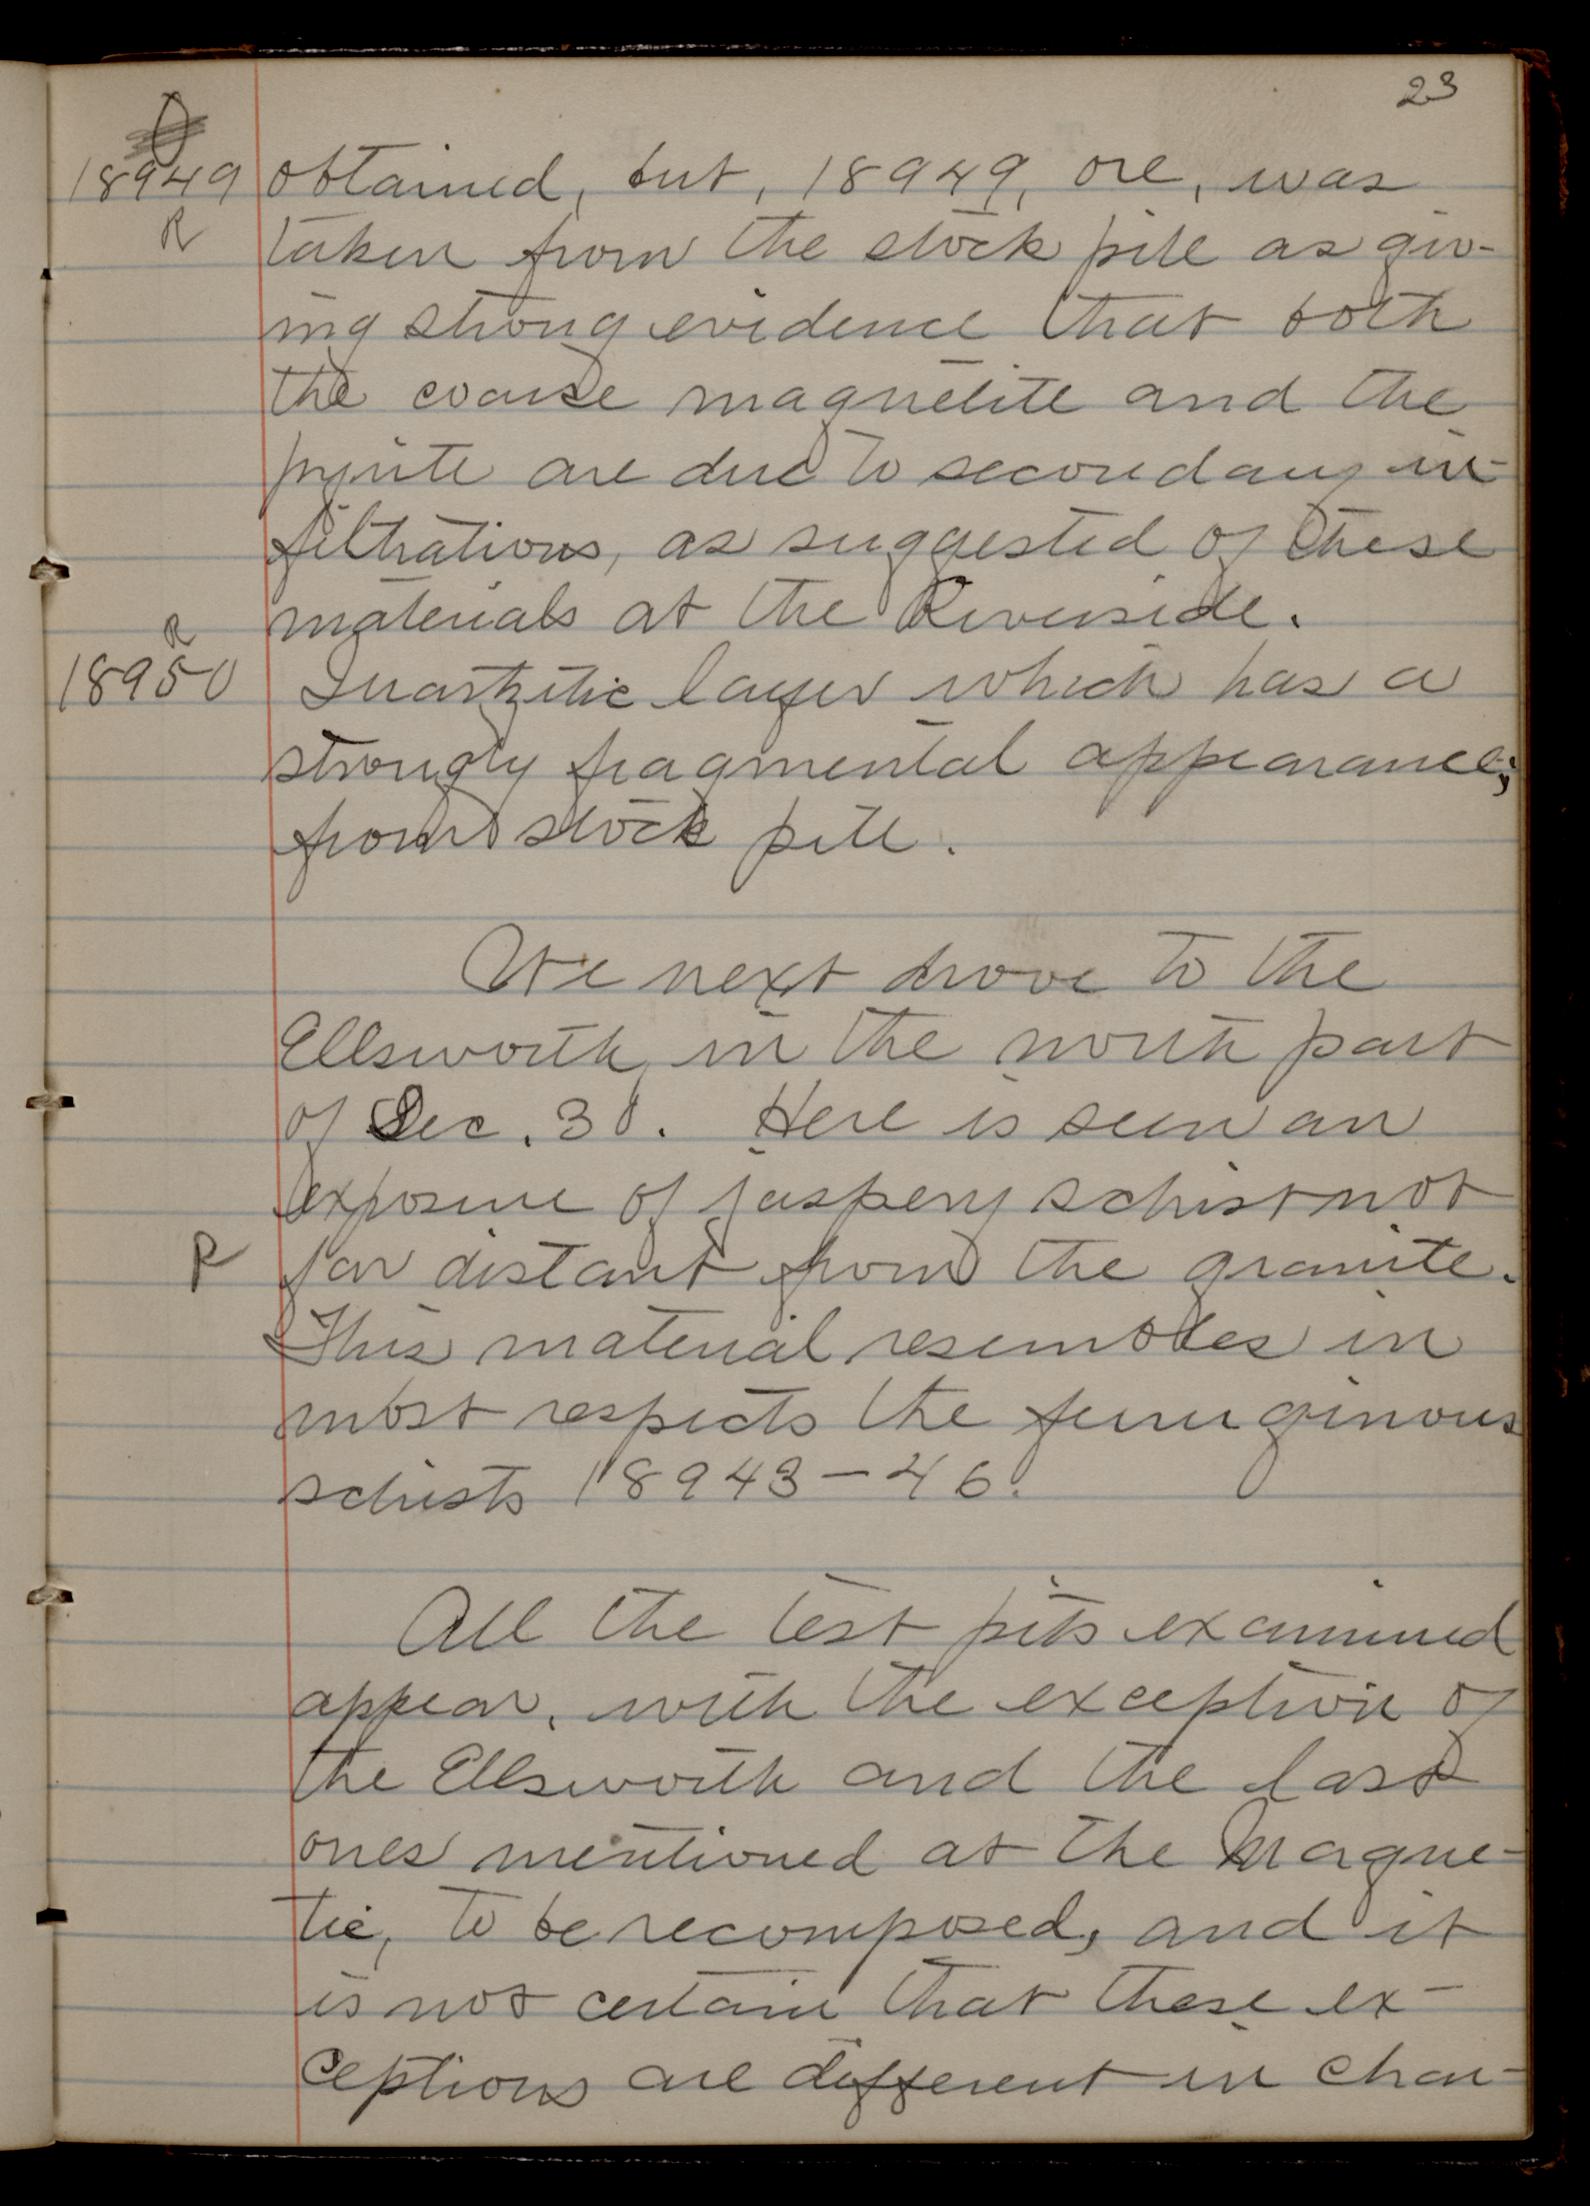 23
18949 obtained, but, 18949, ore, was
R taken from the stock pile as giv-
ing strong evidence that both
the coarse magnetite and the
pyrite are due to secondary in-
filtrations, as suggested of these
materials at the Riverside.
R
18950 Quartzitic layer which has a
strongly fragmental appearance;
from stock pile.
We next drove to the
Ellsworth in the north part
of Sec. 30. Here is seen an
exposure of jaspery schist not
R far distant from the granite.
This material resembles in
most respects the ferruginous
schists 18943-46.
All the test pits examined
appear, with the exception of
the Ellsworth and the last
ones mentioned at the Magne-
tic, to be recomposed, and it
is not certain that these ex-
ceptions are different in char-